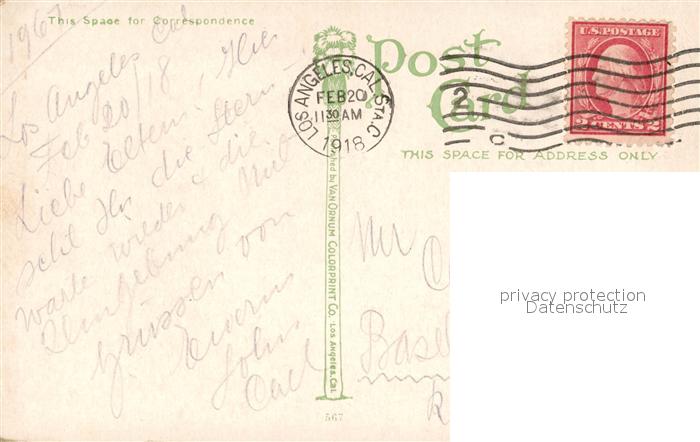 This Space for Correspondence
1967
Los Angeles Cal.
Feb 20/18, Hier
Liebe Eltern
seht Ihr die Stern-
warte wieder & die
Umgebung Mit
Grüssen von
Euerm
Sohn
Carl
Post Card
THIS SPACE FOR ADDRESS ONLY
LOS ANGELES, CAL. STA. C
FEB 20
11 30 AM
1918
2
C
U.S. POSTAGE
2 CENTS 2
Published by VAN ORNUM COLORPRINT CO. LOS ANGELES, CAL.
567
Mr
Basel
privacy protection
Datenschutz